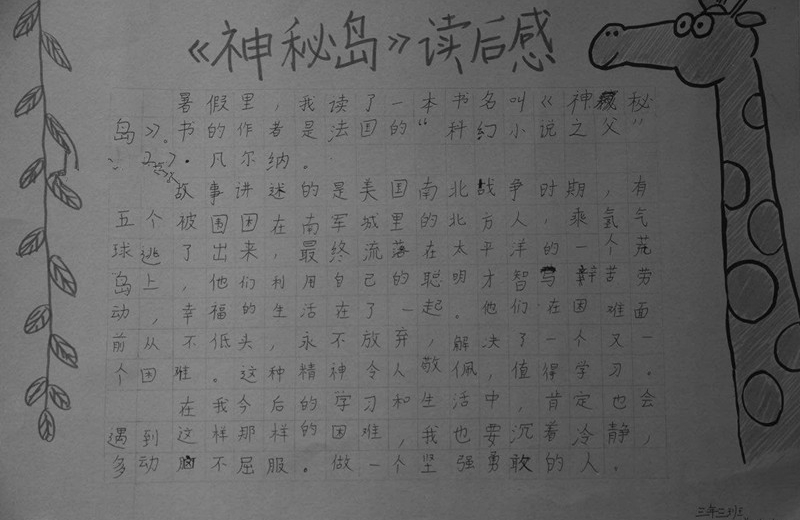 《神秘岛》读后感
暑假里，我读了一本书名叫《神秘
岛》。书的作者是法国的“科幻小说之父”
·凡尔纳。
故事讲述的是美国南北战争时期，有
五个被围困在南军城里的北方人，乘氢气
球逃了出来，最终流落在太平洋的一个荒
岛上，他们利用自己的聪明才智与辩苦劳
动，幸福的生活在了一起。他们在困难面
前从不低头，永不放弃，解决了一个又一
个困难。这种精神令人敬佩，值得学习。
在我今后的学习和生活中，肯定也会
遇到这样那样的困难，我也要沉着冷静，
多动脑不屈服。做一个坚强勇敢的人。
三年三班